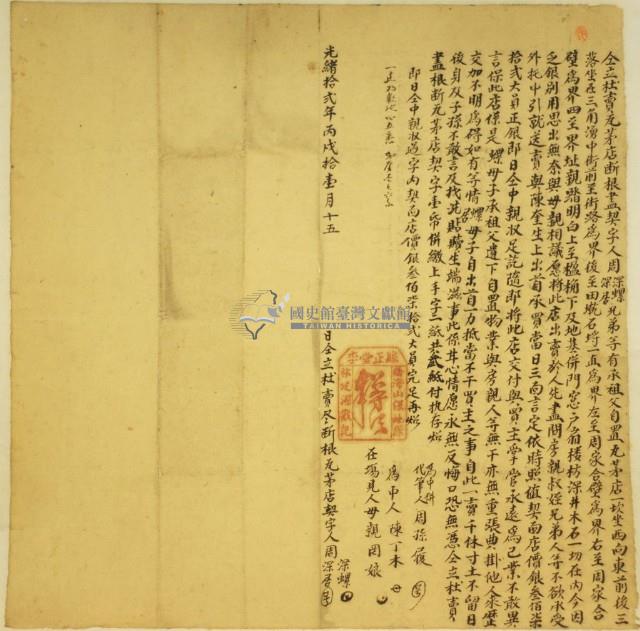 仝立杜賣瓦茅店断根盡契字人周深螺深居兄弟等有承祖父自置瓦茅店一坎坐西向東前後三
落坐在三角湧中街前至街路為界後至田墘石埒一直為界左至周家合壁為界右至周家合
壁為界四至界址親踏明白上至楹桷下及地基併門窓戶扇楼枋深井木石一切在內今因
乏銀別用思出無奈與母親相議愿將此店出賣於人先盡問房親叔姪兄弟人等不欲承受
外托中引就送賣與陳奎生上出首承買當日三面言定依時照值契面店價銀叁佰柒
拾弍大員正銀即日仝中親收足訖隨即將此店交付與買主掌管永遠為己業不敢異
言保此店係是螺母子承祖父遺下自置物業與房親人等無干亦無重張典掛他人來歷
交加不明為碍如有等情螺母子自出首一力抵當不干買主之事自此一賣千休寸土不留日
後身及子孫不敢言及找洗貼贖生端滋事此係甘心情愿永無反悔口恐無憑仝立杜賣
盡根断瓦茅店契字壹帋併繳上手字二紙共叁紙付执存炤
即日仝中親收過字內契面店價銀叁佰柒拾弍大員完足再炤
為中併代筆人 周孫
為中人 陳丁未
在塲見人母親 周娘
光緒拾弍年丙戌拾壹月十五日仝立杜賣尽断根瓦茅店契字人周深螺深居
國史館臺灣文獻館
TAIWAN HISTORICA